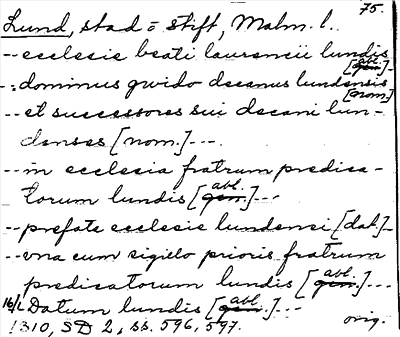 75.
Lund, stad o stift, Malm. l..
-- ecclesie beati laurencii lundis [gen. abl.] --
-- dominus gwido decanus lundensis [nom.]
-- et successores sui decani lun-
denses [nom.] ---
-- in ecclesia fratrum predica-
torum lundis [gen. abl.] ---
-- prefate ecclesie lundensi [dat.] --
-- una cum sigillo prioris fratrum
predicatorum lundis [gen. abl.] ---
16/2 Datum lundis [gen. abl.] ---
1310, SD 2, ss. 596, 597. orig.